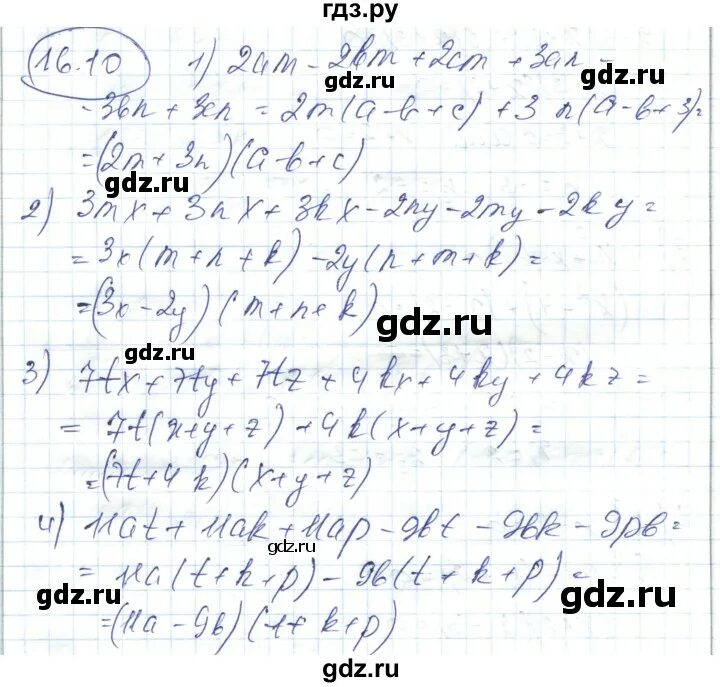 гдз.ру
16.10 1) 2am - 2bm + 2cm + 3an -
- 3bn + 3cn = 2m(a-b+c) + 3n(a-b+3)=
=(2m+3n)(a-b+c)
gdz.ru
gdz.ru
2) 3mx + 3nx + 3kx - 2ny - 2my - 2ky =
= 3x(m+n+k) - 2y(n+m+k) =
=(3x-2y)(m+n+k)
gdz.ru
gdz.ru
3) 7tx + 7ty + 7tz + 4kx + 4ky + 4kz =
= 7t(x+y+z) + 4k(x+y+z) =
=(7t+4k)(x+y+z)
gdz.ru
4) 11at + 11ak + 11ap - 9bt - 9bk - 9pb =
gdz.ru
= 11a(t+k+p) - 9b(t+k+p) =
gdz.ru
gdz.ru
=(11a-9b)(t+k+p)
gdz.ru